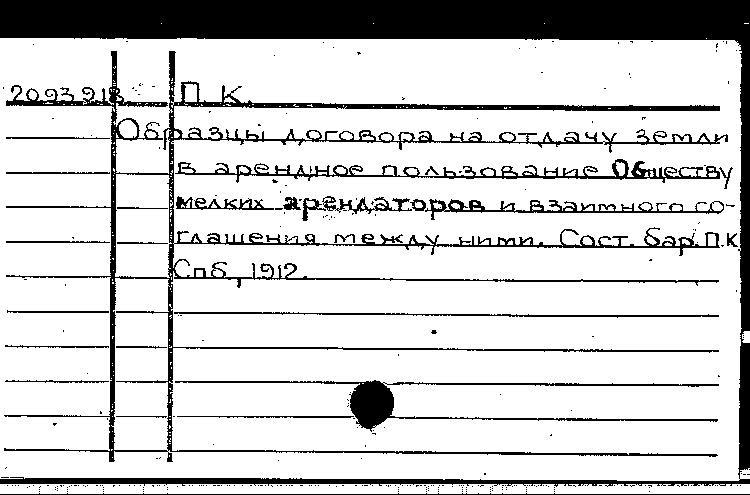 20.93.918. П. К.
Образцы договора на отдачу земли
в арендное пользование Обществу
мелких арендаторов и взаимного со-
глашения между ними. Сост. бар. П.К.
Спб., 1912.